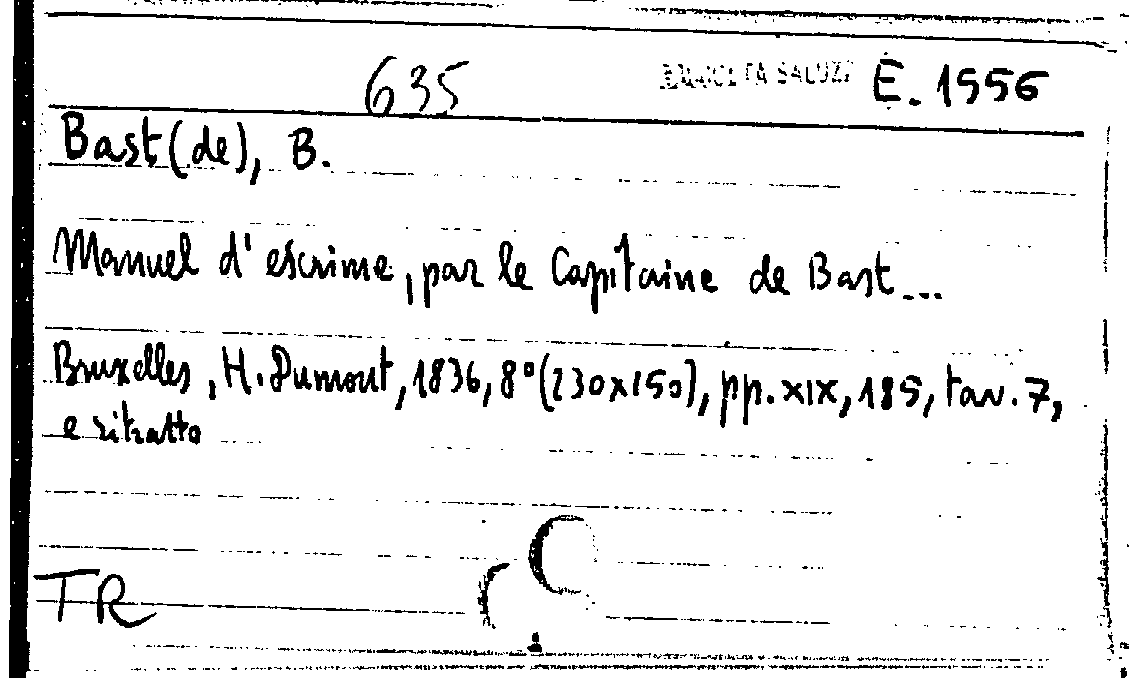 635 E. 1556
Bast (de), B.
Manuel d'escrime, par le Capitaine de Bast...
Bruxelles, H. Dumont, 1836, 8° (230x150), pp. XIX, 185, tav. 7,
e ritratto
TR